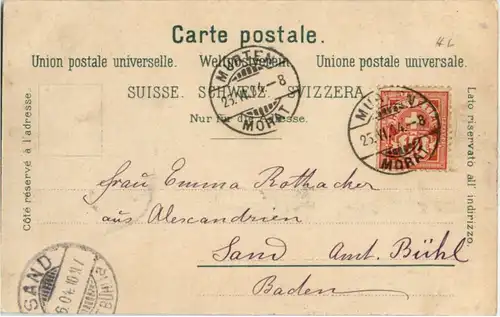 Carte postale.
Union postale universelle. Weltpostverein. Unione postale universale.
SUISSE. SCHWEIZ. SVIZZERA.
Nur für die Adresse.
Côté réservé à l'adresse.
Lato riservato all' indirizzo.
MURTEN
25.VI.04.-8
MORAT
MURTEN
25.VI.04.-8
MORAT
Frau Emma Rothacher
aus Alexandrien
Sand Amt. Bühl
Baden
SAND